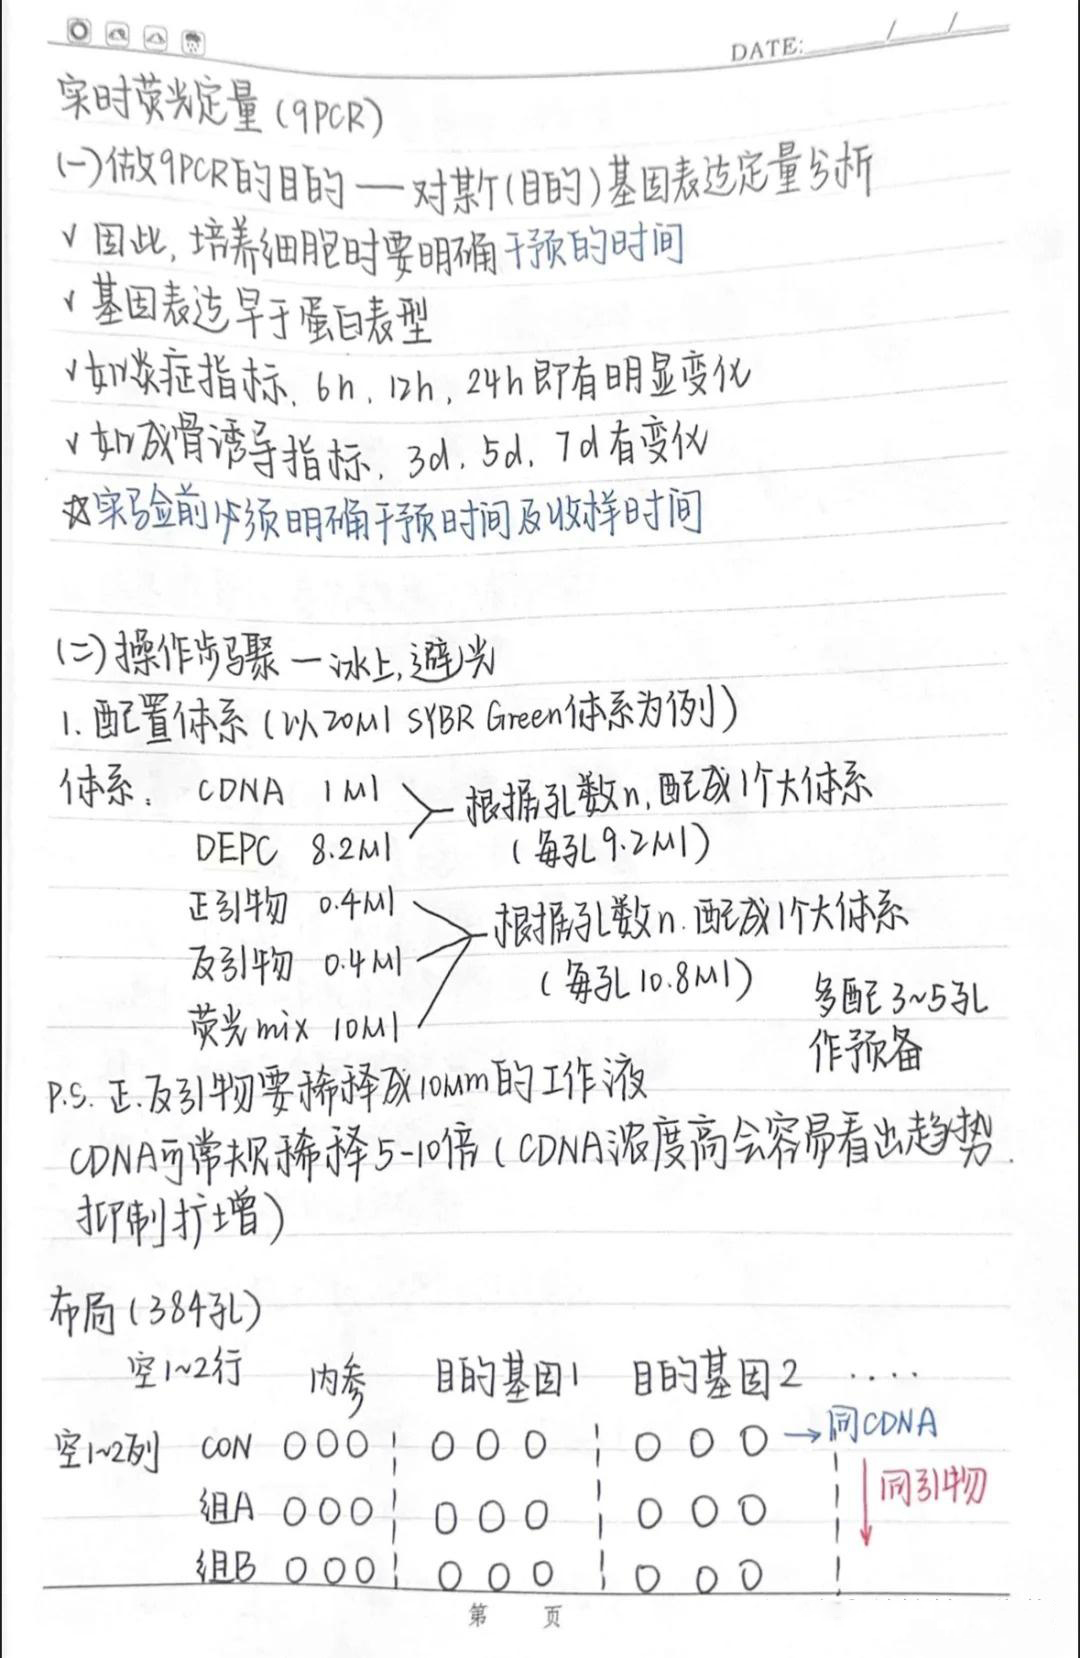 DATE: / /
实时荧光定量(qPCR)
(一)做qPCR的目的 — 对某个(目的)基因表达定量分析
√ 因此, 培养细胞时要明确干预的时间
√ 基因表达早于蛋白表型
√ 如炎症指标, 6h, 12h, 24h即有明显变化
√ 如成骨诱导指标, 3d, 5d, 7d有变化
☆实验前必须明确干预时间及收样时间
(二)操作步骤 — 冰上,避光
1. 配置体系(以20μl SYBR Green体系为例)
体系: CDNA 1μl 根据孔数n,配成1个大体系
DEPC 8.2μl (每孔9.2μl)
正引物 0.4μl 根据孔数n.配成1个大体系
反引物 0.4μl (每孔10.8μl) 多配3~5孔
荧光mix 10μl 作预备
P.S. 正.反引物要稀释成10μm的工作液
CDNA可常规稀释5-10倍(CDNA浓度高会容易看出趋势.
抑制扩增)
布局(384孔)
空1~2行 内参 目的基因1 目的基因2 ····
空1~2列 CON OOO OOO OOO →同CDNA
组A OOO OOO OOO ↓同引物
组B OOO OOO OOO
第 页